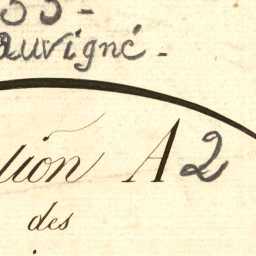 55-
auvigné-
tion A2
des